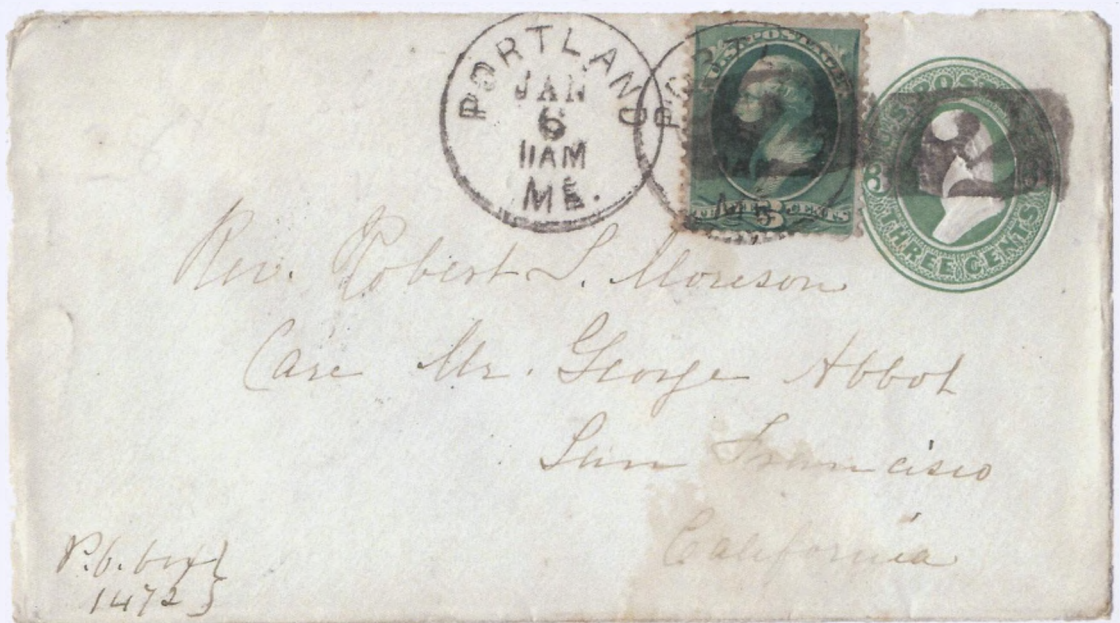 PORTLAND
JAN
6
11AM
ME.
U.S. POSTAGE
THREE 3 CENTS
U.S. POSTAGE
3 3
THREE CENTS
Rev. Robert S. Moreson
Care Mr. George Abbot
San Francisco
California
P.O. box }
1472 }